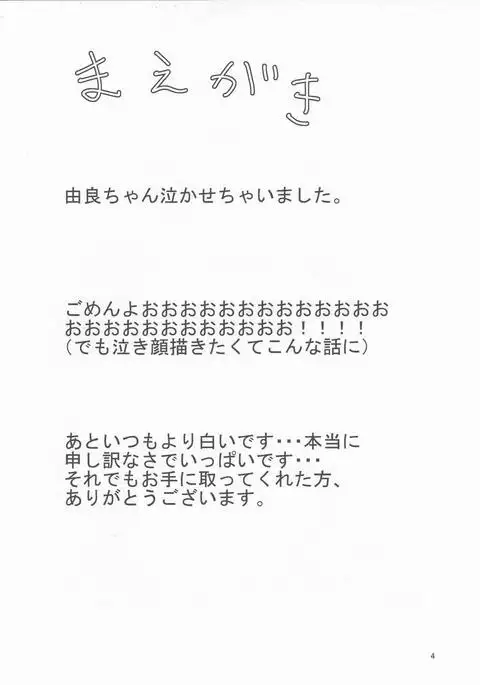 まえがき
由良ちゃん泣かせちゃいました。
ごめんよおおおおおおおおおおおおお
おおおおおおおおおおおお！！！！
(でも泣き顔描きたくてこんな話に)
あといつもより白いです･･･本当に
申し訳なさでいっぱいです･･･
それでもお手に取ってくれた方、
ありがとうございます。
4